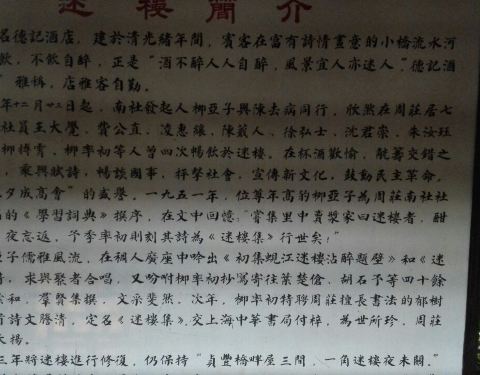 迷樓簡介
名德記酒店，建於清光緒年間，賓客在富有詩情畫意的小橋流水河
飲，不飲自醉，正是“酒不醉人人自醉，風景宜人亦迷人”。德記酒
”雅稱，店雅客自勤。
年十二月廿三日起，南社發起人柳亞子與陳去病同行，欣然在周莊居七
社員王大覺、費公直、凌惠纕、陳蕺人、徐弘士、沈君崇、朱汝玨
柳率初等人曾四次暢飲於迷樓。在杯酒歡愉，觥籌交錯之
，乘興賦詩，暢談國事，抨擊社會，宣傳新文化，鼓動民主革命。
夕成高會”的盛譽。一九五一年，位尊年高的柳亞子為周莊南社社
的《學習詞典》撰序，在文中回憶：“嘗集里中賣漿家曰迷樓者，酣
夜忘返，予季率初則刻其詩為《迷樓集》行世矣！”
子儒雅風流，在稠人廣座中吟出《初集蜆江迷樓沾醉題壁》和《迷
，求與聚者合唱，又吩咐柳率初抄寫寄往葉楚傖、胡石予等四十餘
和。羣賢集撰，文采斐然。次年，柳率初特將周莊擅長書法的郁樹
首詩文謄清，定名《迷樓集》，交上海中華書局付梓，為世所珍，周莊
大揚。
三年將迷樓進行修復，仍保持“貞豐橋畔屋三間，一角迷樓夜未關。”